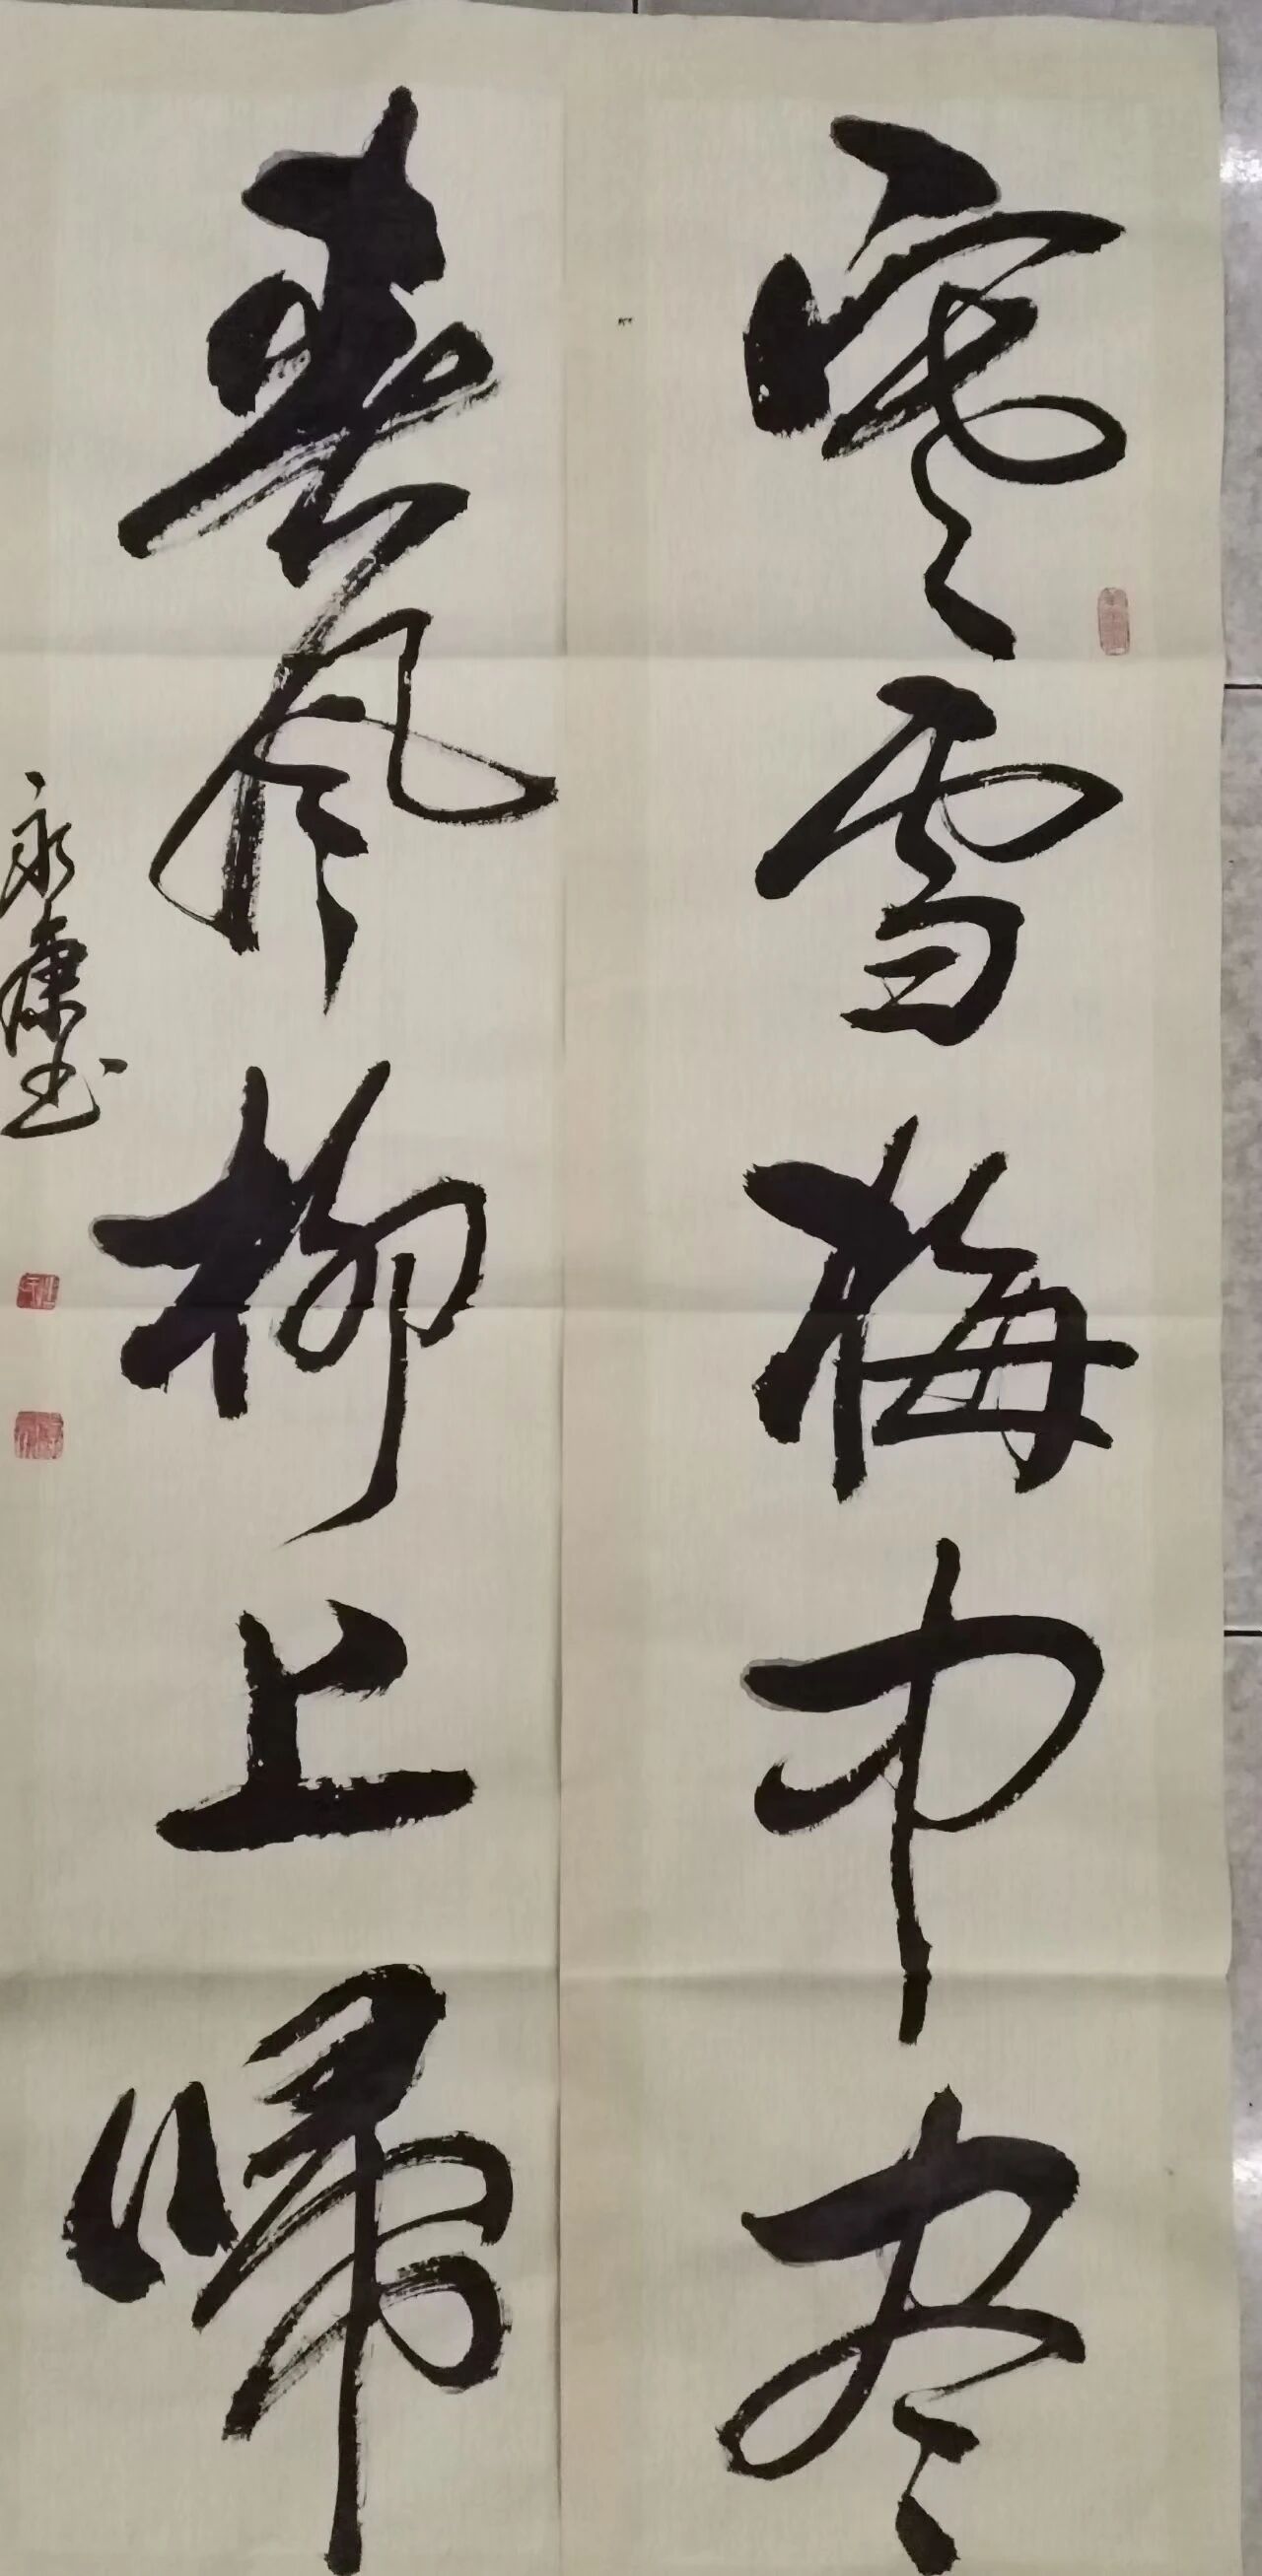 寒雪梅中尽
春风柳上归
永康书